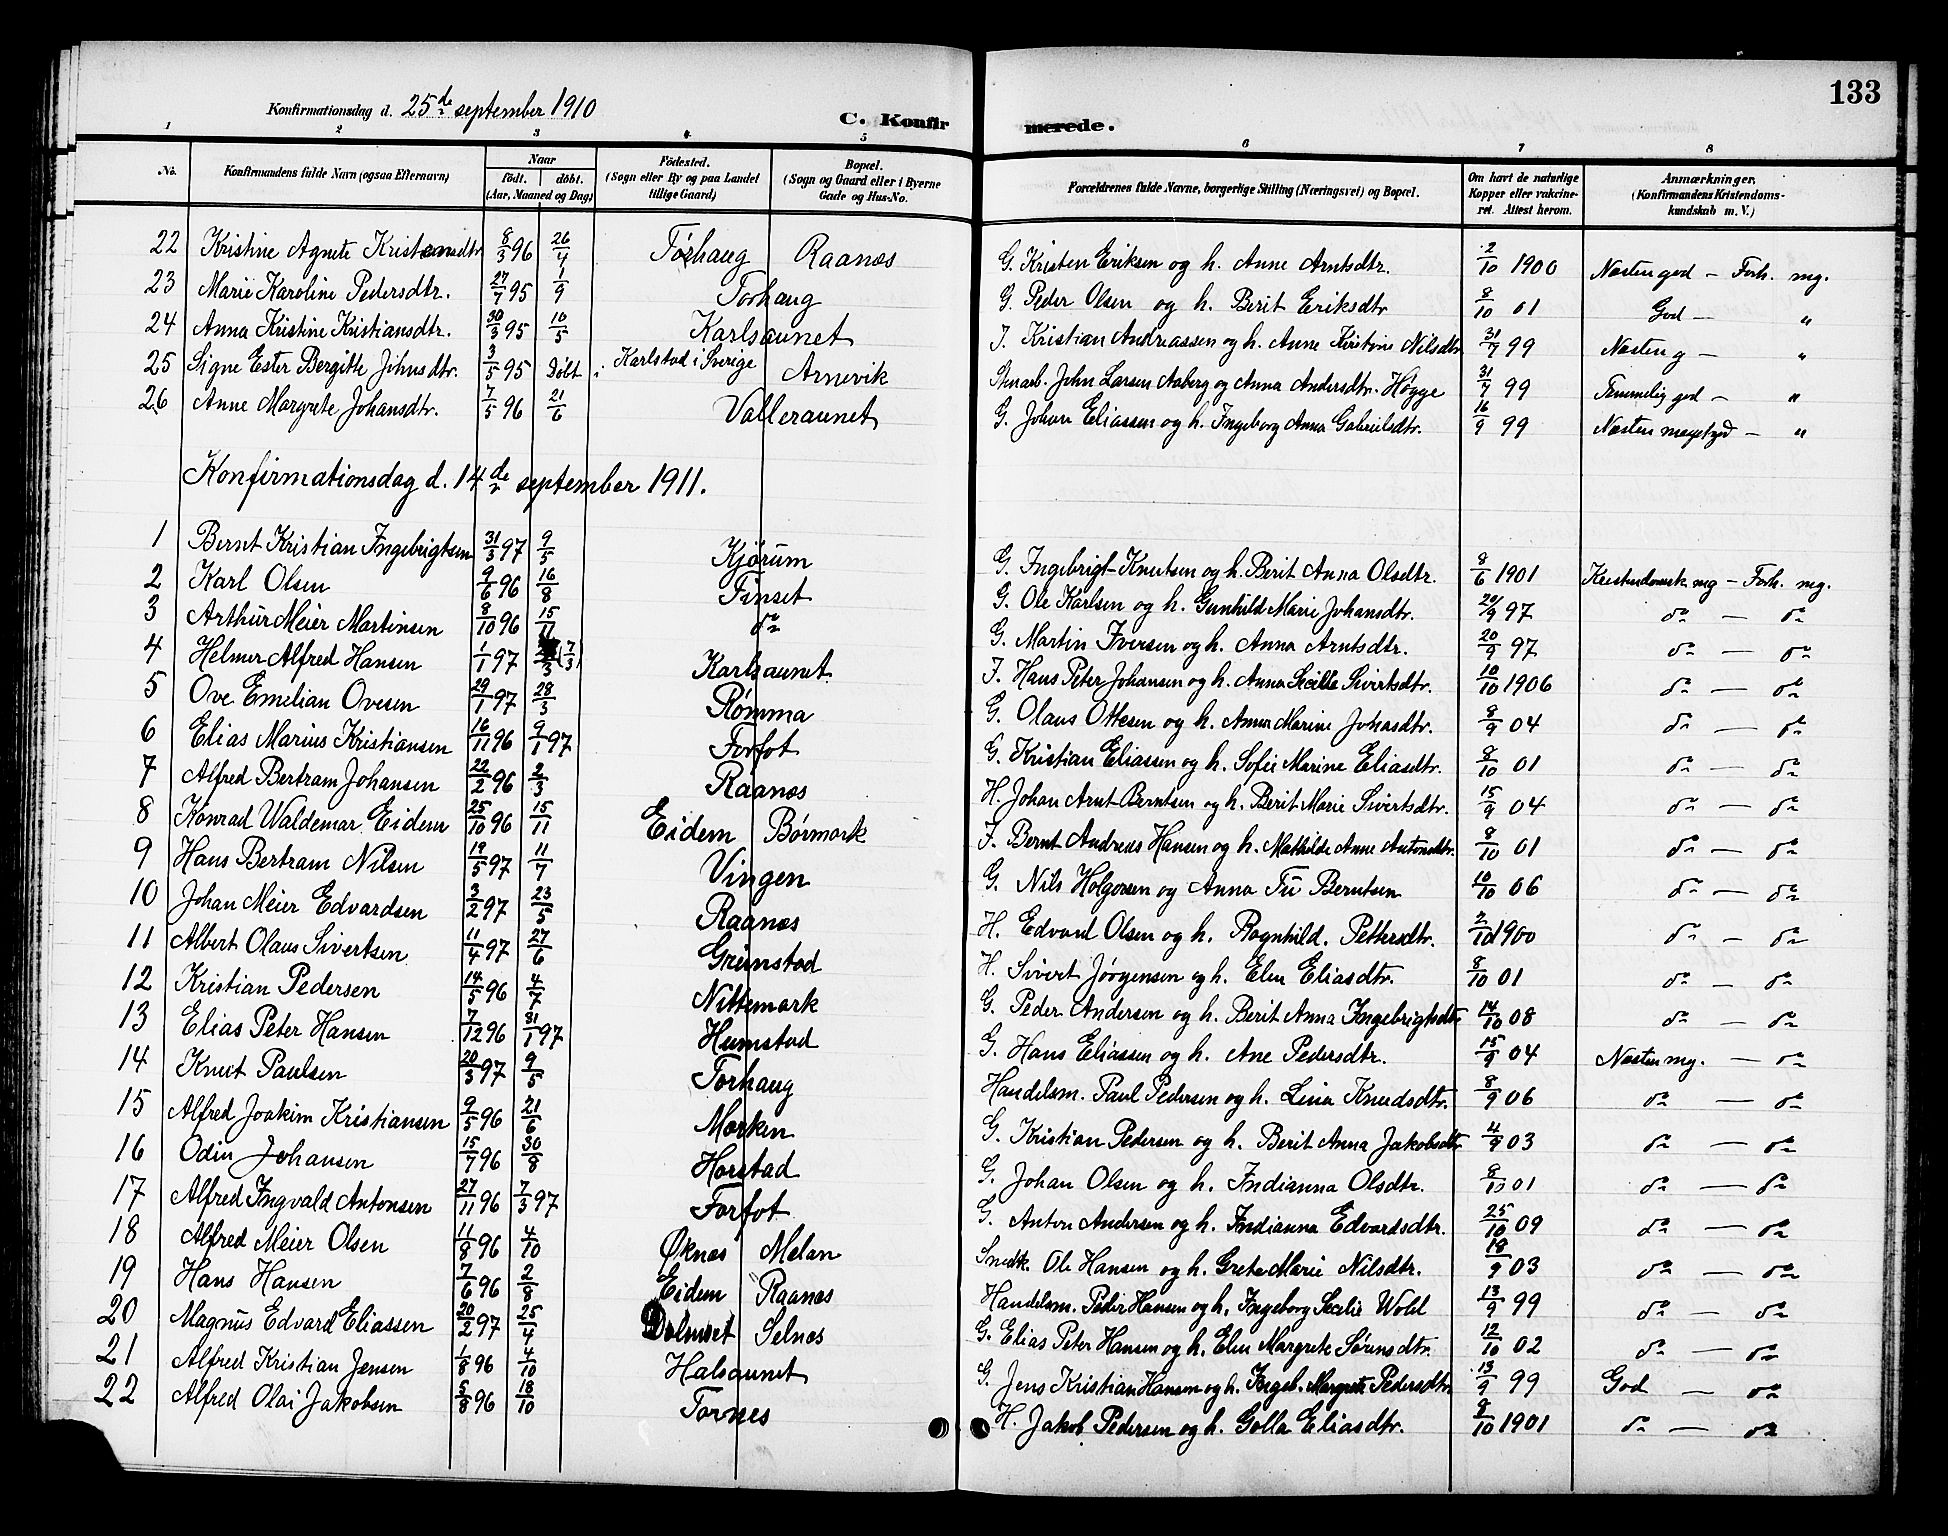 133
Konfirmationsdag d. 25de september 1910
C. Konfirmerede.
1 2 3 4 5 6 7 8
No. Konfirmandens fulde Navn (ogsaa Efternavn) Naar født. døbt. (Aar, Maaned og Dag) Fødested. (Sogn eller By og paa Landet tillige Gaard) Bopæl. (Sogn og Gaard eller i Byerne Gade og Hus-No. Forældrenes fulde Navne, borgerlige Stilling (Næringsvei) og Bopæl. Om havt de naturlige Kopper eller vakcineret. Attest herom. Anmærkninger, (Konfirmandens Kristendomskundskab m. V.)
22 Kristine Agnete Kristensdtr 8/3 96 26/4 Torhaug Raanes G. Kristen Eriksen og h. Anne Arntsdtr. 2/10 1900 Næsten god — Forh. mg.
23 Marie Karoline Pedersdtr. 27/7 95 1/9 Torhaug G. Peder Olsen og h. Berit Eriksdtr 8/10 01 God — "
24 Anna Kristine Kristiansdtr. 30/3 95 10/5 Karlsaunet I. Kristian Andreassen og h. Anne Kristine Nilsdtr 31/7 99 Næsten g — "
25 Signe Ester Bergitte Johnsdtr. 3/5 95 Døbt i Karlstad i Sverige Arnevik Stenarb. John Larsen Aaberg og Anna Andersdtr. Høgge 31/7 99 Temmelig god — "
26 Anne Margrete Johansdtr. 7/5 96 21/6 Valleraunet G. Johan Eliassen og h. Ingeborg Anna Gabrielsdtr. 16/9 99 Næsten meget god — "
Konfirmationsdag d. 14de september 1911.
1 Bernt Kristian Ingebrigtsen 31/3 97 9/5 Kjørum G. Ingebrigt Knutsen og h. Berit Anna Olsdtr. 8/6 1901 Kristendomsk. mg — Forh. mg.
2 Karl Olsen 9/6 96 16/8 Finset G. Ole Karlsen og h. Gunhild Marie Johansdtr. 20/9 97 do — do
3 Arthur Meier Martinsen 8/10 96 15/11 do G. Martin Iversen og h. Anna Arntsdtr. 20/9 97 do — do
4 Helmer Alfred Hansen 1/1 97 (7/3) Karlsaunet I. Hans Peter Johansen og h. Anna Secilie Sivertsdtr. 10/10 1906 do — do
5 Ove Emelian Ovesen 29/1 97 28/3 Rømma G. Olaus Ottesen og h. Anna Marine Johasdtr. 8/9 04 do — do
6 Elias Marius Kristiansen 16/11 96 9/1 97 Forfot G. Kristian Eliassen og h. Sofie Marine Eliasdtr. 8/10 01 do — do
7 Alfred Bertram Johansen 22/2 96 2/3 Raanes H. Johan Arnt Berntsen og h. Berit Marie Sivertsdtr. 15/9 04 do — do
8 Konrad Waldemar Eidem 25/10 96 15/11 Eidem Børmark I. Bernt Andreas Hansen og h. Mathilde Anne Antonsdtr. 8/10 01 do — do
9 Hans Bertram Nilsen 19/5 97 11/7 Vingen G. Nils Holgersen og Anna Fu Berntsen 10/10 06 do — do
10 Johan Meier Edvardsen 3/2 97 23/5 Raanes H. Edvard Olsen og h. Ragnhild. Pettersdtr. 2/10 1900 do — do
11 Albert Olaus Sivertsen 11/4 97 27/6 Grimstad H. Sivert Jørgensen og h. Elen Eliasdtr. 8/10 01 do — do
12 Kristian Pedersen 14/5 96 4/7 Nittemark G. Peder Andersen og h. Berit Anna Ingebrigtsdtr 14/10 08 do — do
13 Elias Peter Hansen 7/12 96 31/1 97 Humstad G. Hans Eliassen og h. Ane Pedersdtr. 15/9 04 Næsten mg. — do
14 Knut Paulsen 20/3 97 9/5 Torhaug Handelsm. Paul Pedersen og h. Lina Knudsdtr. 8/9 06 do — do
15 Alfred Joakim Kristiansen 9/5 96 21/6 Morken G. Kristian Pedersen og h. Berit Anna Jakobsdtr 4/9 03 do — do
16 Odin Johansen 15/7 96 30/8 Harstad G. Johan Olsen og h. Indianna Olsdtr. 8/10 01 do — do
17 Alfred Ingvald Antonsen 27/11 96 7/3 97 Forfot G. Anton Andersen og h. Indianna Edvardsdtr. 25/10 09 do — do
18 Alfred Meier Olsen 11/8 96 4/10 Øknes Melan Snedk. Ole Hansen og h. Grete Marie Nilsdtr. 18/9 03 do — do
19 Hans Hansen 7/6 96 2/8 Eidem Raanes Handelsm. Peder Hansen og h. Ingeborg Secilie Wold 13/9 99 do — do
20 Magnus Edvard Eliassen 20/2 97 25/4 Dolmset Selnes G. Elias Peter Hansen og h. Elen Margrete Sørensdtr. 12/10 02 do — do
21 Alfred Kristian Jensen 1/8 96 4/10 Halsaunet G. Jens Kristian Hansen og h. Ingeb. Margrete Pedersdtr. 13/9 99 God — do
22 Alfred Olai Jakobsen 5/8 96 18/10 Tornes H. Jakob Pedersen og h. Golla Eliasdtr. 8/10 1901 do — do